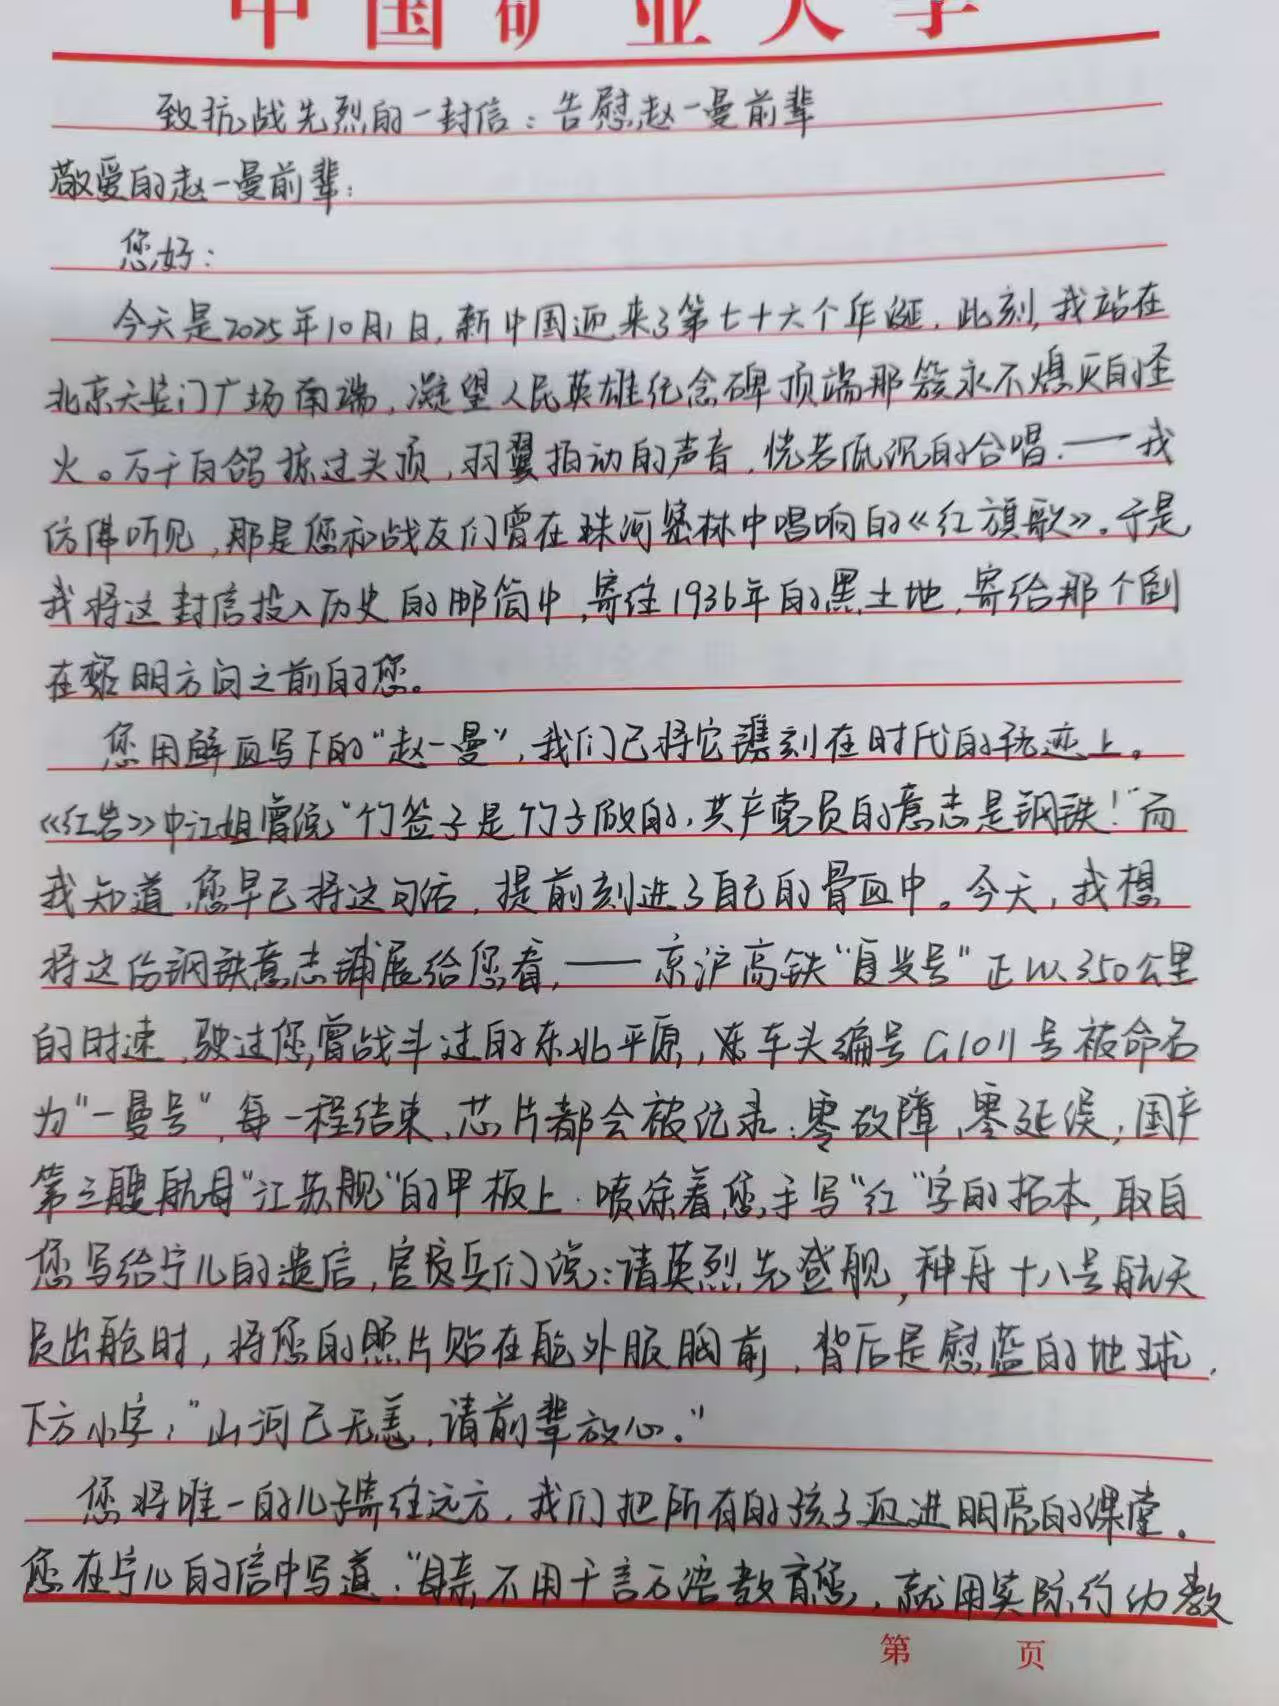 中国矿业大学
致抗战先烈的一封信：告慰赵一曼前辈
敬爱的赵一曼前辈：
您好：
今天是2025年10月1日，新中国迎来了第七十六个年诞，此刻，我站在
北京天安门广场南端，凝望人民英雄纪念碑顶端那簇永不熄灭的圣
火。万千白鸽掠过头顶，羽翼拍动的声音，恍若低沉的合唱，——我
仿佛听见，那是您和战友们曾在珠河密林中唱响的《红旗歌》。于是
我将这封信投入历史的邮筒中，寄往1936年的黑土地，寄给那个倒
在黎明方向之前的您。
您用鲜血写下的“赵一曼”，我们已将它镌刻在时代的轨迹上。
《红岩》中江姐曾说“竹签子是竹子做的，共产党员的意志是钢铁！”而
我知道，您早已将这句话，提前刻进了自己的骨血中。今天，我想
将这份钢铁意志铺展给您看，——京沪高铁“复兴号”正以350公里
的时速，驶过您曾战斗过的东北平原，车头编号G1011号被命名
为“一曼号”，每一程结束，芯片都会被记录：零故障，零延误，国产
第三艘航母“江苏舰”的甲板上，喷涂着您手写“红”字的拓本，取自
您写给宁儿的遗信，官兵们说：请英烈先登舰，神舟十八号航天
员出舱时，将您的照片贴在舱外服胸前，背后是慰蓝的地球，
下方小字：“山河已无恙，请前辈放心。”
您将唯一的儿子寄往远方，我们把所有的孩子迎进明亮的课堂。
您在宁儿的信中写道：“母亲不用千言万语教育您，就用实际行动教
第 页